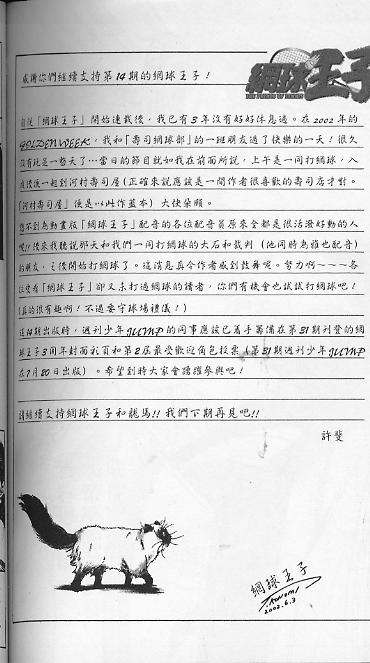 網球王子
THE PRINCE OF TENNIS
感謝你們繼續支持第14期的網球王子!
自從「網球王子」開始連載後,我已有3年沒有好好休息過。在2002年的
GOLDEN WEEK,我和「壽司網球部」的一班朋友過了快樂的一天!很久
沒有玩足一整天了…當日的節目就如我在前面所說,上午是一同打網球,入
夜後便一起到河村壽司屋(正確來說應該是一間作者很喜歡的壽司店才對。
「河村壽司屋」便是以此作藍本)大快朵頤。
想不到為動畫版「網球王子」配音的各位配音員原來全都是很活潑好動的人
呢!後來我聽說那天和我們一同打網球的大石和裁判(他同時為雅也配音)
的朋友,之後開始打網球了。這消息真令作者感到鼓舞呢。努力啊~~~各
位愛看「網球王子」卻又未打過網球的讀者,你們有機會也試試打網球吧!
(真的很有趣啊!不過要守球場禮儀!)
這14期出版時,週刊少年JUMP的同事應該已着手籌備在第31期刊登的網
球王子3周年封面彩頁和第2屆最受歡迎角色投票(第31期週刊少年JUMP
在7月20日出版)。希望到時大家會踴躍參與吧!
請繼續支持網球王子和龍馬!!我們下期再見吧!!
許斐
網球王子
2002.6.3